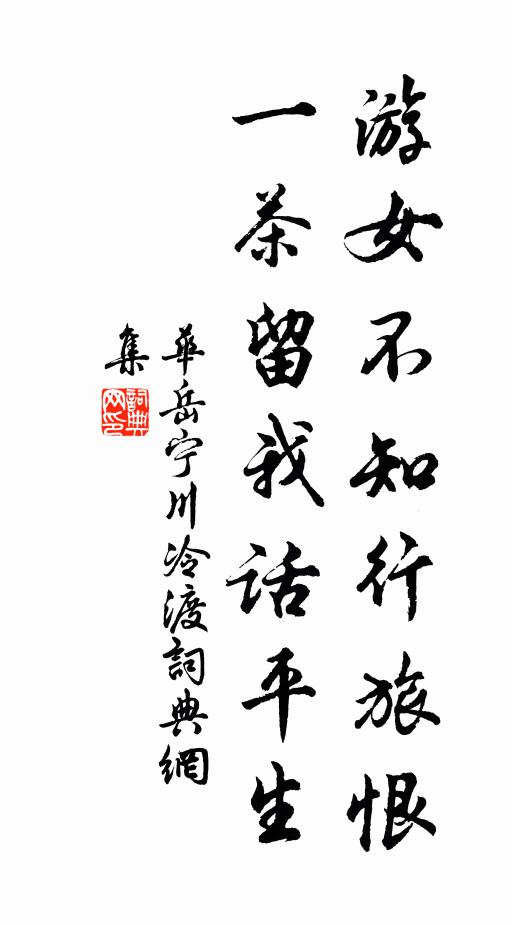 游女不知行旅恨
一茶留我话平生
華岳宁川冷渡詞典網
集
詞典
网印